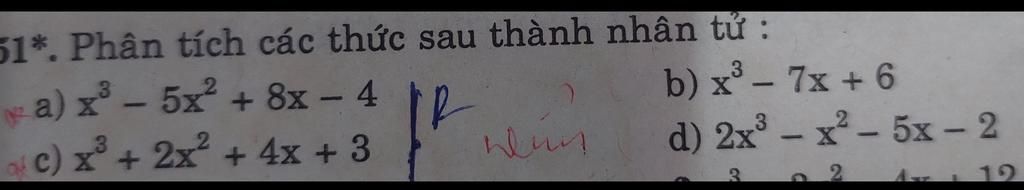 51*. Phân tích các thức sau thành nhân tử :
a) x³ – 5x² + 8x – 4 b) x³ – 7x + 6
c) x³ + 2x² + 4x + 3 d) 2x³ – x² – 5x – 2